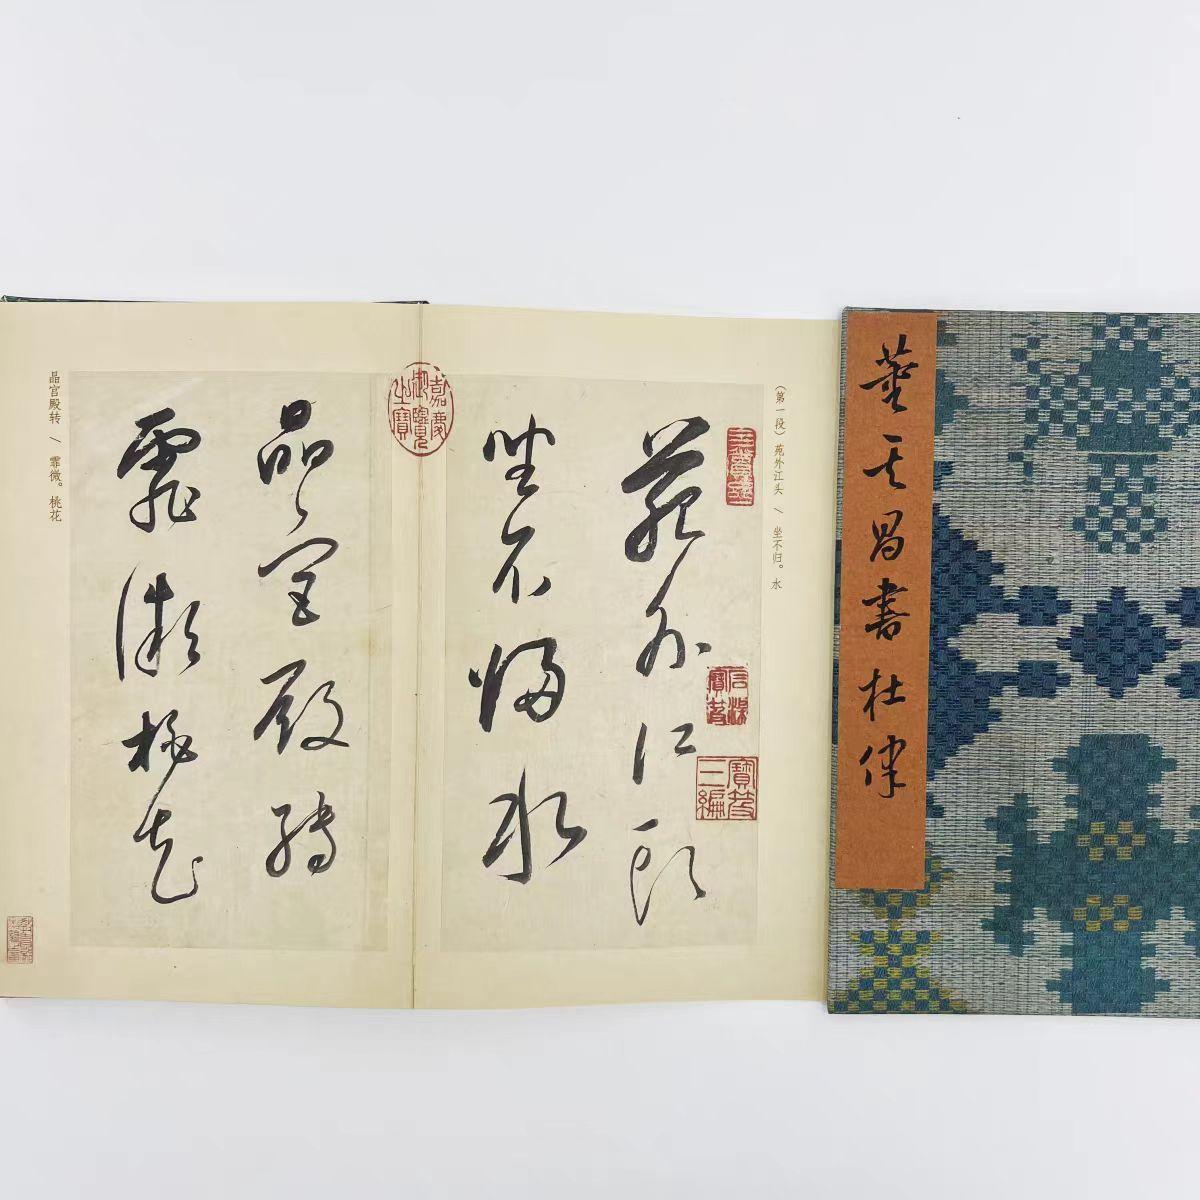 董其昌書杜律
（第一段）苑外江头 / 坐不归。水
苑外江頭
坐不歸水
石渠寶笈
寶笈三編
嘉慶御覽之寶
晶宮殿轉
霏微桃花
晶官殿转 / 霏微。桃花